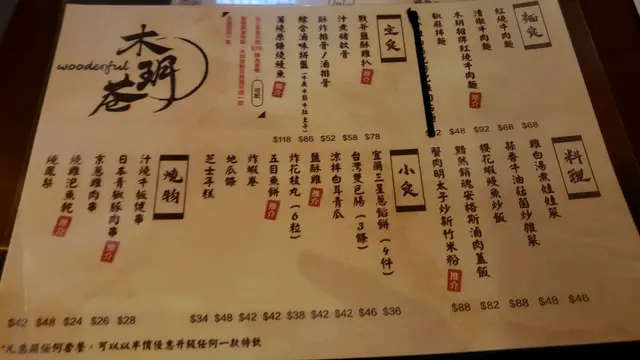 麵炙
紅燒牛肉麵 $68
清燉牛肉麵 $68
木玥招牌紅燒牛肉麵 推介 $92
椒麻拌麵 $48
主炙
戰斧鹽酥雞扒 推介 $78
汁煮豬軟骨 $58
酥炸排骨/滷排骨 $52
綜合滷味拼盤 $86
蒲燒原條鰻鰻魚 推介 $118
木玥巷
wooderful
料理
雞白湯煮娃娃菜 $46
蒜香牛油菇菌炒雜菜 $48
櫻花蝦鰻魚炒飯 $88
黯然銷魂安格斯滷肉蓋飯 $82
蟹肉明太子炒新竹米粉 推介 $88
小炙
宜蘭三星蔥餡餅(4件) $36
台灣雙色腸(3條) $46
涼拌白耳青瓜 $42
鹽酥雞 推介 $42
炸花枝丸(6粒) $38
五目魚餅 推介 $42
炸蝦卷 $42
地瓜條 $48
芝士年糕 $34
燒物
汁燒牛板腱串 $28
日本青椒豚肉串 推介 $26
京蔥雞肉串 $24
燒雞泡魚乾 推介 $48
燒鳳梨 $42
*凡惠顧任何套餐，可以以半價優惠升級任何一款特飲